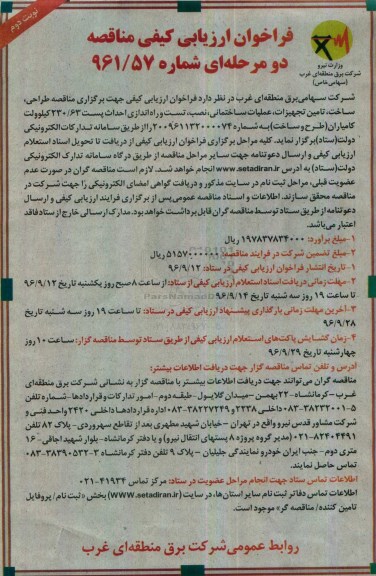 نوبت دوم
فراخوان ارزیابی کیفی مناقصه
دو مرحله‌ای شماره ۹۶۱/۵۷
وزارت نیرو
شرکت برق منطقه‌ای غرب
(سهامی خاص)
شرکت سهامی برق منطقه‌ای غرب در نظر دارد فراخوان ارزیابی کیفی جهت برگزاری مناقصه طراحی،
ساخت، تامین تجهیزات، عملیات ساختمانی، نصب، تست و راه اندازی احداث پست ۲۳۰/۶۳ کیلوولت
کامیاران (طرح و ساخت) به شماره ۲۰۰۹۶۱۱۳۲۰۰۰۰۷۴ را از طریق سامانه تدارکات الکترونیکی
دولت (ستاد) برگزار نماید. کلیه مراحل برگزاری فراخوان ارزیابی کیفی از دریافت تا تحویل اسناد استعلام
ارزیابی کیفی و ارسال دعوتنامه جهت سایر مراحل مناقصه از طریق درگاه سامانه تدارک الکترونیکی
دولت (ستاد) به آدرس www.setadiran.ir انجام خواهد شد. لازم است مناقصه گران در صورت عدم
عضویت قبلی، مراحل ثبت نام در سایت مذکور و دریافت گواهی امضای الکترونیکی را جهت شرکت در
مناقصه محقق سازند. اطلاعات و اسناد مناقصه عمومی پس از برگزاری فرایند ارزیابی کیفی و ارسال
دعوتنامه از طریق ستاد توسط مناقصه گران قابل برداشت خواهد بود. مدارک ارسالی خارج از ستاد فاقد
اعتبار می‌باشد.
۱-مبلغ برآورد: ۱۹۷۸۳۷۸۳۴۰۰۰ ریال
۲-مبلغ تضمین شرکت در فرایند مناقصه: ۵۱۵۷۰۰۰۰۰۰ ریال
۱- تاریخ انتشار فراخوان ارزیابی کیفی در ستاد: ۹۶/۹/۱۲
۲-مهلت زمانی دریافت اسناد استعلام ارزیابی کیفی از ستاد: از ساعت ۸ صبح روز یکشنبه تاریخ ۹۶/۹/۱۲
تا ساعت ۱۹ روز سه شنبه تاریخ ۹۶/۹/۱۴
۳-آخرین مهلت زمانی بارگذاری پیشنهاد ارزیابی کیفی در ستاد: تا ساعت ۱۹ روز سه شنبه تاریخ
۹۶/۹/۲۸
۴-زمان گشایش پاکت‌های استعلام ارزیابی کیفی از طریق ستاد توسط مناقصه گزار: ساعت ۱۰ روز
چهارشنبه تاریخ ۹۶/۹/۲۹
آدرس و تلفن تماس مناقصه گزار جهت دریافت اطلاعات بیشتر:
مناقصه گران می توانند جهت دریافت اطلاعات بیشتر با مناقصه گزار به نشانی شرکت برق منطقه‌ای
غرب - کرمانشاه - ۲۲ بهمن - میدان گلایول - طبقه دوم - امور تدارکات و قراردادها - شماره تلفن
۰۸۳-۳۸۲۳۲۰۰۱-۵ داخلی ۲۲۳۸ و ۳۸۲۲۷۲۴۹-۰۸۳ اداره قراردادها داخلی ۲۴۲۰ واحد فنی و
شرکت مشاور قدس نیرو واقع در تهران - خیابان شهید مطهری بعد از تقاطع سهروردی - پلاک ۸۲ تلفن
۸۲۴۰۴۴۹۱-۰۲۱ (مدیر گروه پروژه ۸ پستهای انتقال نیرو) و یا دفتر کرمانشاه - بلوار شهید اجاقی - ۱۶
متری دوم - جنب ایران خودرو نمایندگی جلیلیان - پلاک ۹ تلفن دفتر کرمانشاه ۳-۳۸۳۹۰۵۳۲-۰۸۳
تماس حاصل نمایند.
اطلاعات تماس ستاد جهت انجام مراحل عضویت در ستاد: مرکز تماس ۴۱۹۳۴-۰۲۱
اطلاعات تماس دفاتر ثبت نام سایر استان‌ها، در سایت (www.setadiran.ir) بخش «ثبت نام / پروفایل
تامین کننده / مناقصه گر» موجود است.
روابط عمومی شرکت برق منطقه‌ای غرب